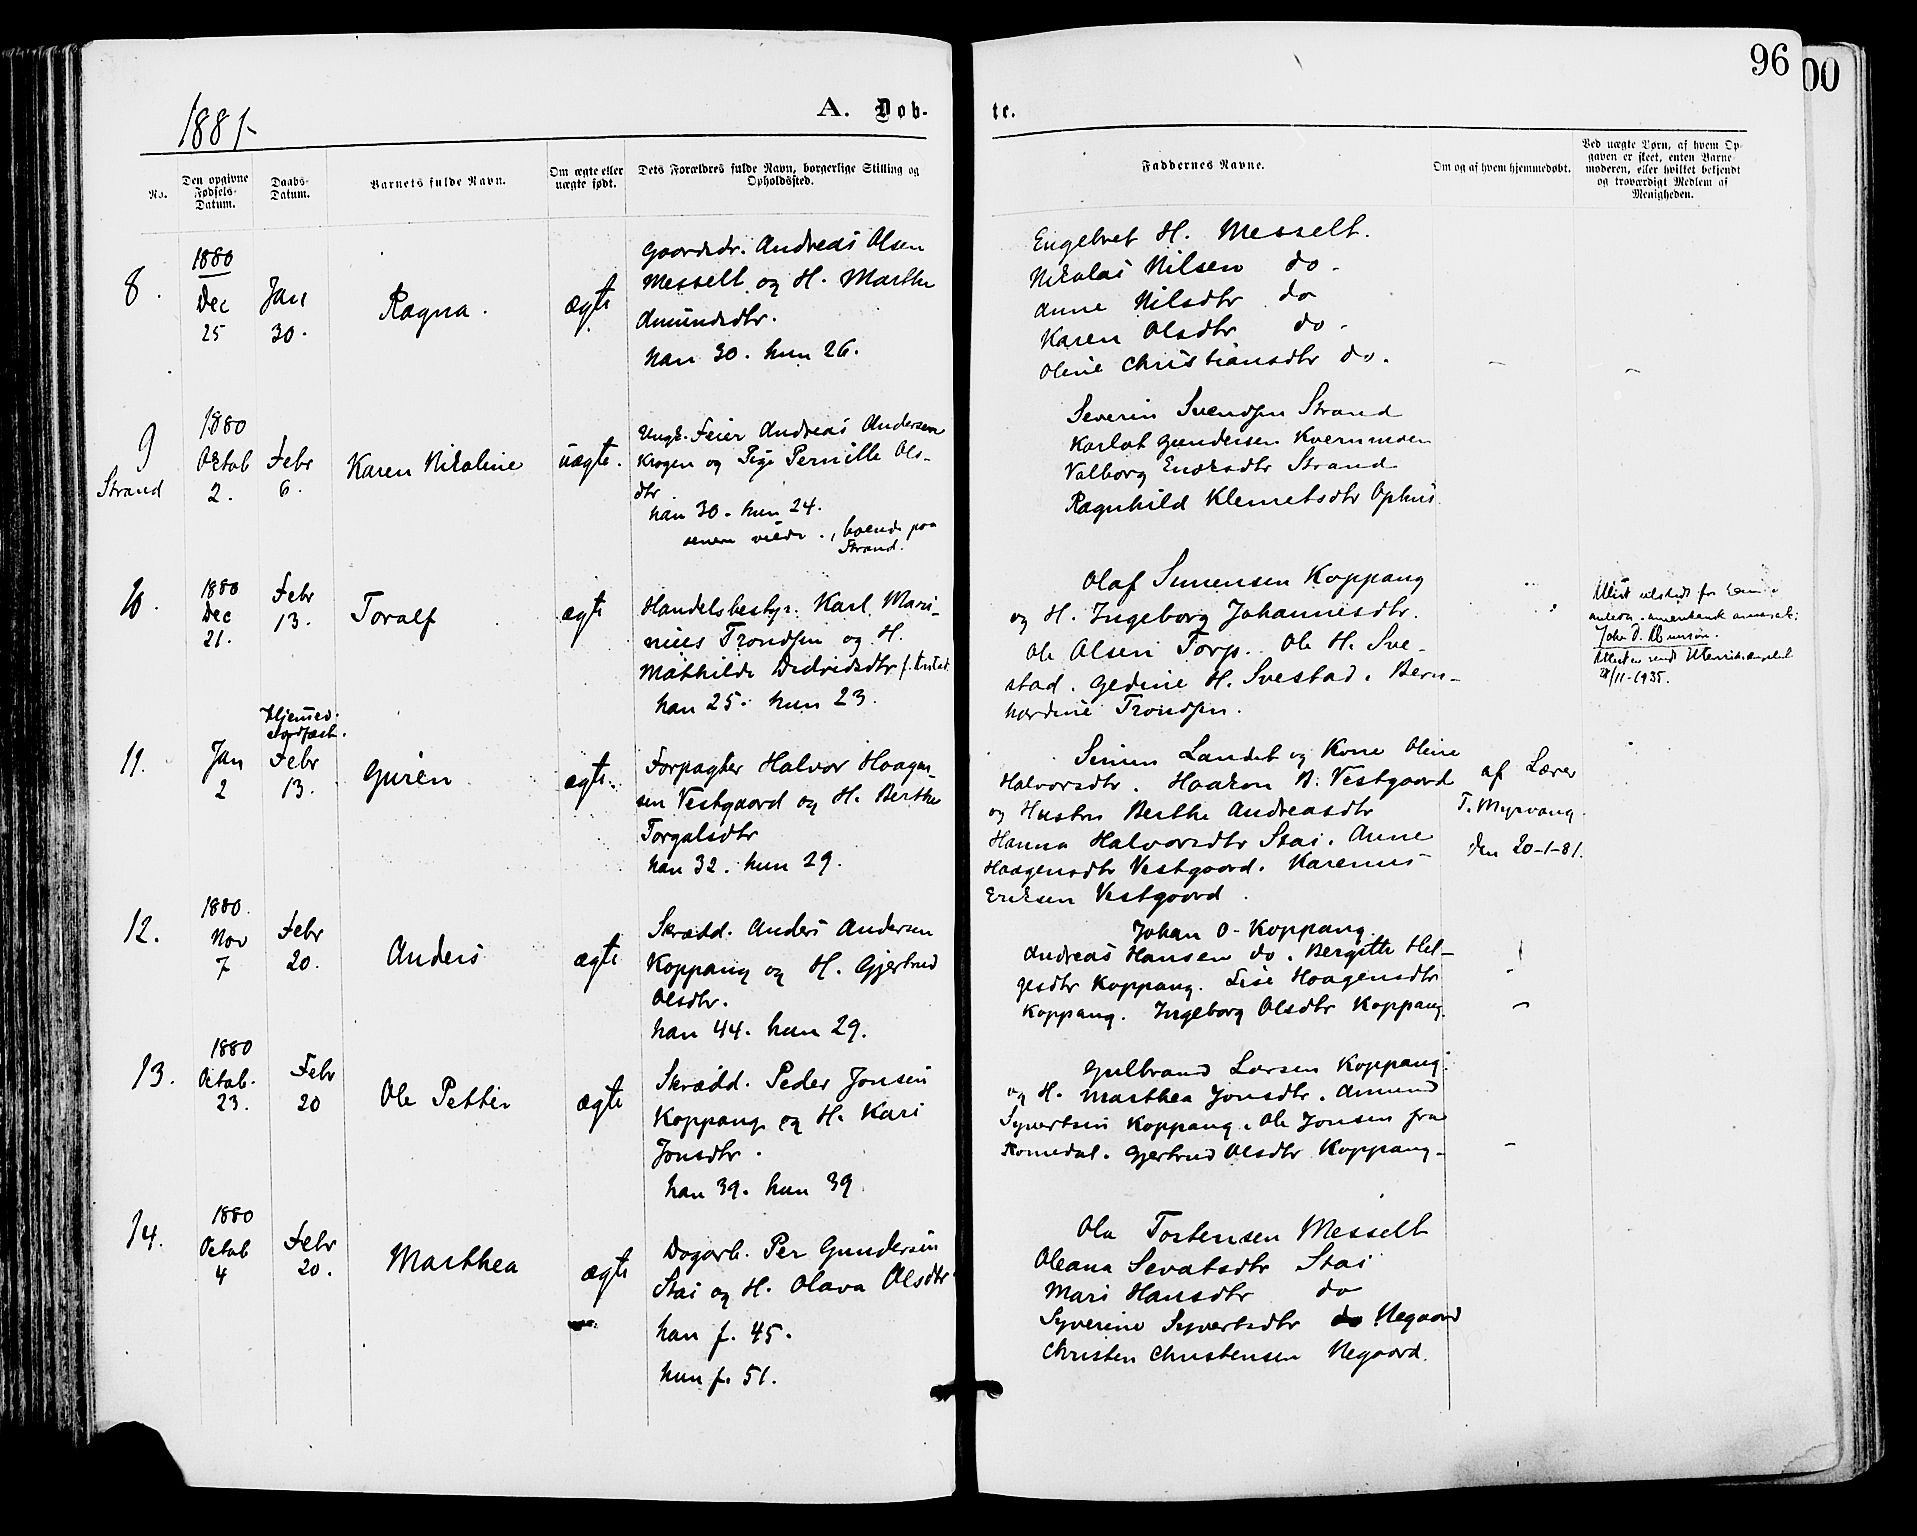 96
00
1881-
A. Døb-
te.
No.
Den opgivne
Fødsels-
Datum.
Daabs-
Datum.
Barnets fulde Navn.
Om ægte eller
uægte født.
Dets Forældres fulde Navn, borgerlige Stilling og
Opholdssted.
Faddernes Navne.
Om og af hvem hjemmedøbt.
Ved uægte Børn, af hvem Op-
gaven er skeet, enten Barne-
moderen, eller hvilket bekjendt
og troværdigt Medlem af
Menigheden.
8.
1880
Dec
25
Jan
30.
Ragna.
ægte
Gaardbr. Andreas Olsen
Messelt og H. Marthe
Amundsdtr.
han 30. hun 26.
Engebret H. Messelt.
Nikolai Nilsen do.
Anne Nilsdtr do
Karen Olsdtr do.
Oline Christiansdtr do.
9
Strand
1880
Octob
2.
Febr
6.
Karen Nikoline
uægte.
Ungk. Feier Andreas Andersen
Krogen og Pige Pernille Ols-
dtr.
han 30. hun 24.
senere viede, boende paa
Strand.
Severin Svendsen Strand
Karlot Gundersen Kvernmoen
Valborg Endresdtr Strand
Ragnhild Klemetsdtr Ophus
10.
1880
Dec
21.
Febr
13.
Toralf
ægte
Handelsbestyr. Karl Mari-
nius Trondsen og H.
Mathilde Didriksdtr
han 25. hun 23.
Olaf Simensen Koppang
og H. Ingeborg Johannesdtr.
Ole Olsen Torp. Ole H. Sve-
stad. Gedine H. Svestad. Bern-
hardine Trondsen.
Attest utstedt for
28/11-1935.
11.
Jan
2
Hjemmed.
stadfæst.
Febr
13.
Guren
ægte.
Forpagter Halvor Haagen-
sen Vestgaard og H. Berthe
Torgalsdtr
han 32. hun 29.
Simen Landet og Kone Oline
Halvorsdtr. Haakon B. Vestgaard
og Hustru Berthe Andreasdtr
Hanna Halvorsdtr Stai. Anne
Haagensdtr Vestgaard. Karenus
Eriksen Vestgaard.
af Lærer
T. Myrvang.
den 20-1-81.
12.
1880.
Nov
7
Febr
20.
Anders
ægte
Skrædd. Anders Andersen
Koppang og H. Gjertrud
Olsdtr.
han 44. hun 29.
Johan O. Koppang.
Andreas Hansen do. Bergitte Hel-
gesdtr Koppang. Lise Haagensdtr
Koppang. Ingeborg Olsdtr Koppang.
13.
1880
Octob.
23.
Febr
20
Ole Petter
ægte
Skrædd. Peder Jonsen
Koppang og H. Kari
Jonsdtr.
han 39. hun 39
Gulbrand Larsen Koppang
og H. Marthea Jonsdtr. Amund
Syvertsen Koppang. Ole Jonsen fra
Romedal. Gjertrud Olsdtr Koppang.
14.
1880
Octob
4
Febr
20.
Marthea
ægte
Dagarb. Per Gundersen
Stai og H. Olava Olsdtr
han f. 45.
hun f. 51.
Ola Tostensen Messelt
Oleana Sevatsdtr Stai
Mari Hansdtr do
Syverine Syvertsdtr do Negaard
Christen Christensen Negaard.